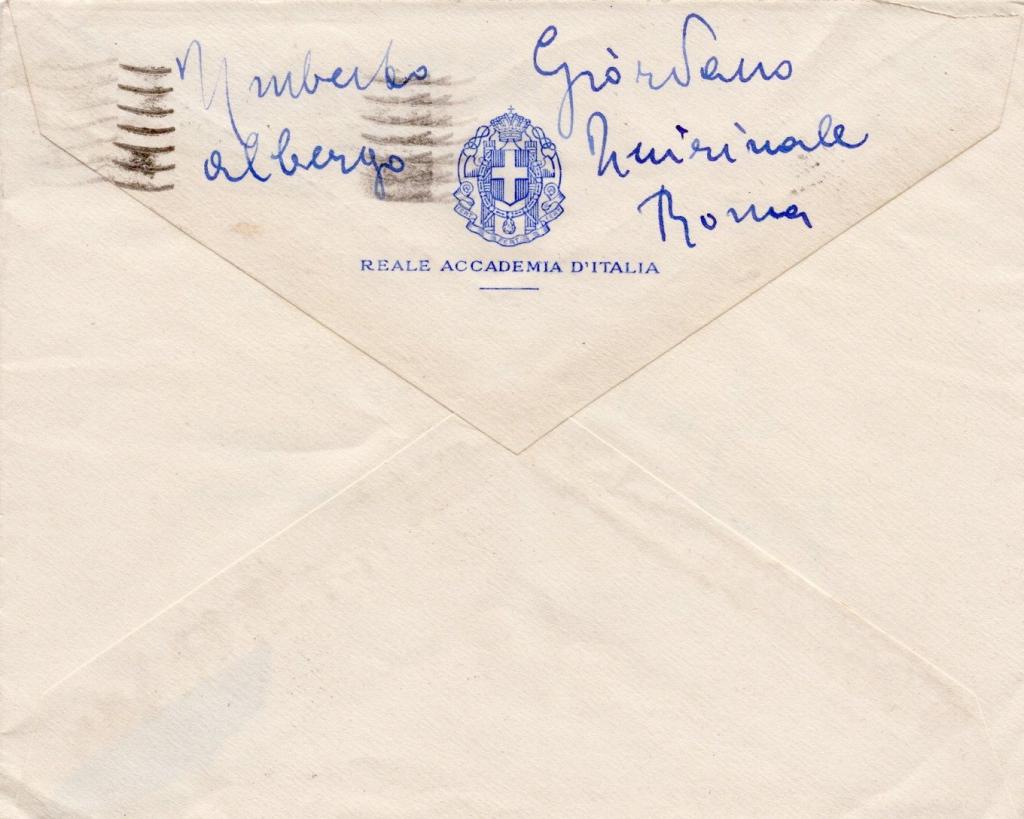 Umberto Giordano
albergo Quirinale
Roma
FERT FERT FERT
REALE ACCADEMIA D'ITALIA